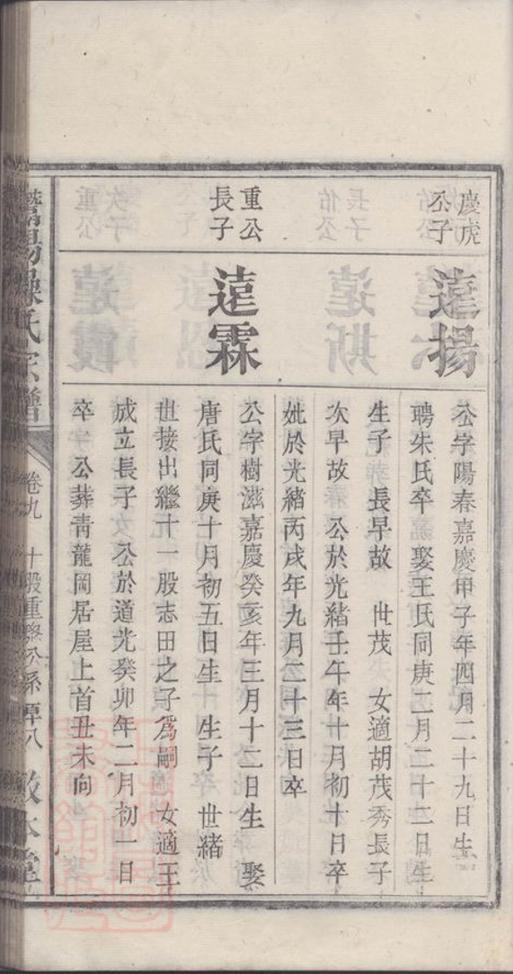 慶虎
公子
達揚
公字陽春嘉慶甲子年四月二十九日生
聘朱氏卒 娶王氏同庚二月二十二日生
生子 長早故 世茂 女適胡茂秀長子
次早故 公於光緒壬午年十月初十日卒
妣於光緒丙戌年九月二十三日卒
重公
長子
達霖
公字樹滋嘉慶癸亥年三月十二日生 娶
唐氏同庚十月初五日生 生子 世緒
世接出繼十一股志田之子為嗣 女適王
成立長子 公於道光癸卯年二月初一日
卒 公葬青龍岡居屋上首丑未向
氏宗譜
卷九
十股重公系
敦本堂